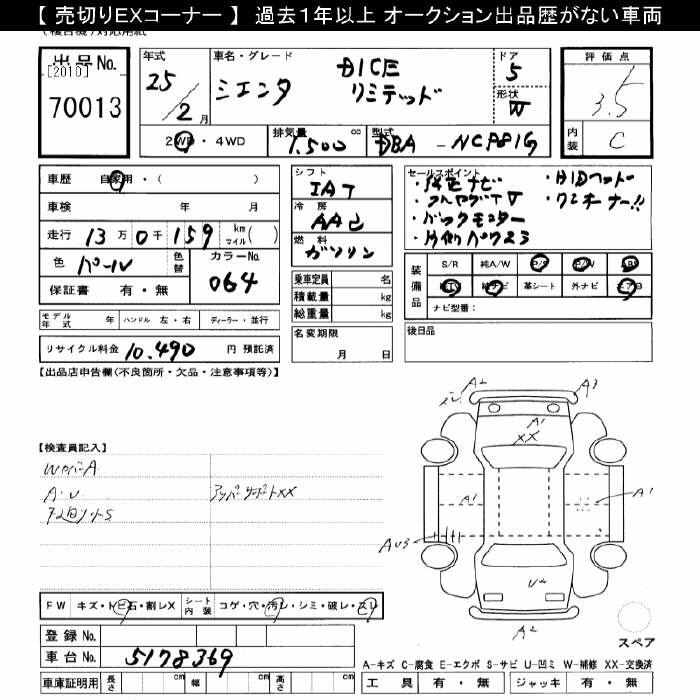 【 売切りEXコーナー 】 過去1年以上 オークション出品歴がない車両
(複合機)対応用紙
出品No.
[2010]
70013
年式
25/2月
車名・グレード
シエンタ
DICE
リミテッド
ドア
5
形状
W
評価点
3.5
内装
C
2WD・4WD
排気量
1,500cc
型式
DBA - NCP81G
車歴 自家用・( )
車検 年 月
走行 13万0千159 km マイル( )
色 パール
色替
カラーNo.
064
保証書 有・無
シフト
IAT
冷房
AAC
燃料
ガソリン
乗車定員 名
積載量 kg
総重量 kg
セールスポイント
・純正ナビ
・フルセグTV
・バックモニター
・片側パワスラ
・HIDヘッド
・ワンオーナー!!
装備品
S/R 純A/W P/S P/W ABS
純TV 純ナビ 革シート 外ナビ エアB
ナビ型番:
モデル年式 年 ハンドル 左・右 ディーラー・並行
リサイクル料金 10,490 円 預託済
名変期限
月 日
後日品
【出品店申告欄(不良箇所・欠品・注意事項等)】
【検査員記入】
WカバーA
A・U
アッパーサポートXX
下回りサビS
A2
A3
A1
XX
A1
A1
AU3
U2
A2
スペア
FW キズ・トビ石・割レX
シート内装 コゲ・穴・汚レ・シミ・破レ・スレ
登録No.
車台No. 5178369
車庫証明用 長さ cm 幅 cm 高さ cm
A-キズ C-腐食 E-エクボ S-サビ U-凹ミ W-補修 XX-交換済
工具 有・無 ジャッキ 有・無